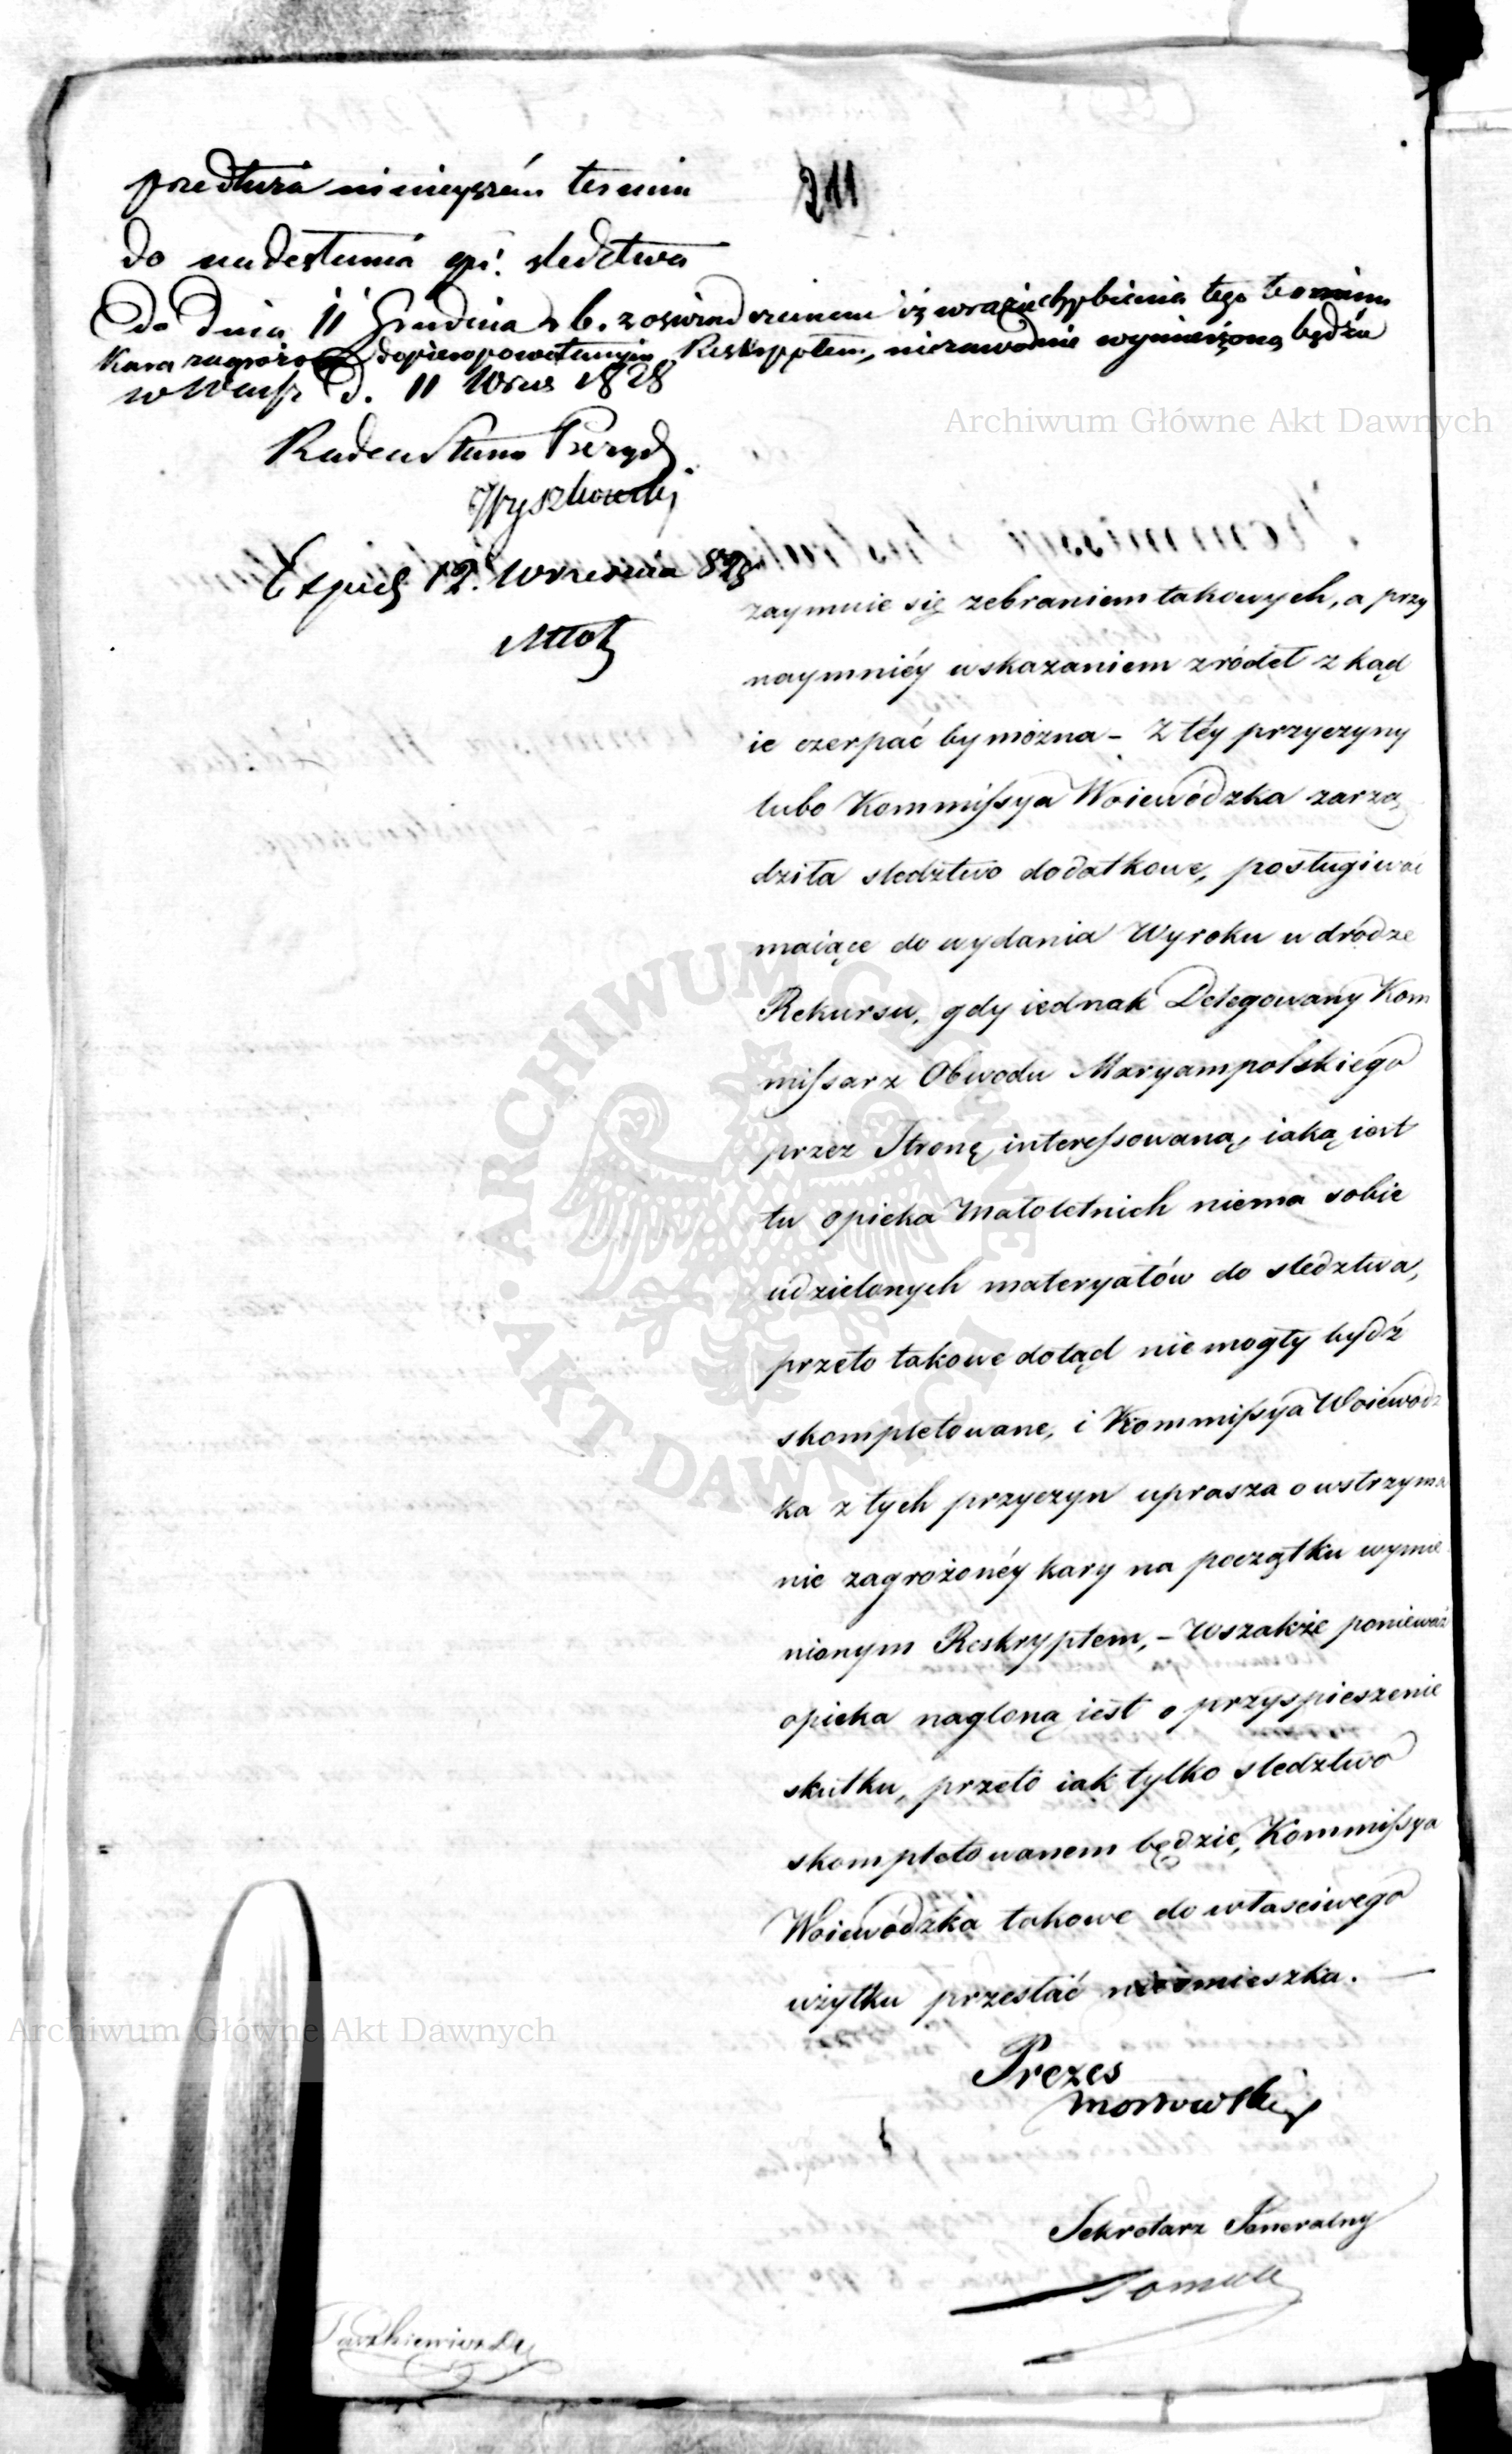 211
przedłuża ninieyszém termin
do nadesłania
do dnia 11 Grudnia r. b. z oświadczeniem iż w razie chybienia tego terminu
Kara zagrożona dopiero powołanym Reskryptem, niezawodnie wymierzoną będzie
w Warsz. d. 11 Wrześ 1828
Radca Stanu
Wyszkowski
Exped 12. Września 828
zaymuie się zebraniem takowych, a przy
naymniéy wskazaniem zródeł z kąd
ie czerpać by można – Z téy przyczyny
lubo Kommissya Woiewódzka zarzą
dziła sledztwo dodatkowe, posługiwać
maiące do wydania Wyroku w dródze
Rekursu, gdy iednak Delegowany Kom
missarz Obwodu Maryampolskiego
przez Stronę interessowaną, iaką iest
tu opieka Małoletnich niema sobie
udzielonych materyałów do sledztwa,
przeto takowe dotąd nie mogły bydź
skompletowane, i Kommissya Woiewódz
ka z tych przyczyn uprasza o wstrzyma
nie zagrożonéy kary na początku wymie
nionym Reskryptem, – Wszakże ponieważ
opieka nagloną iest o przyspieszenie
skutku, przeto iak tylko sledztwo
skompletowanem będzie, Kommissya
Woiewódzka takowe do właściwego
użytku przesłać nieomieszka. —
Prezes
Morowski
Sekretarz Generalny
Archiwum Główne Akt Dawnych
Archiwum Główne Akt Dawnych
ARCHIWUM GŁÓWNE AKT DAWNYCH